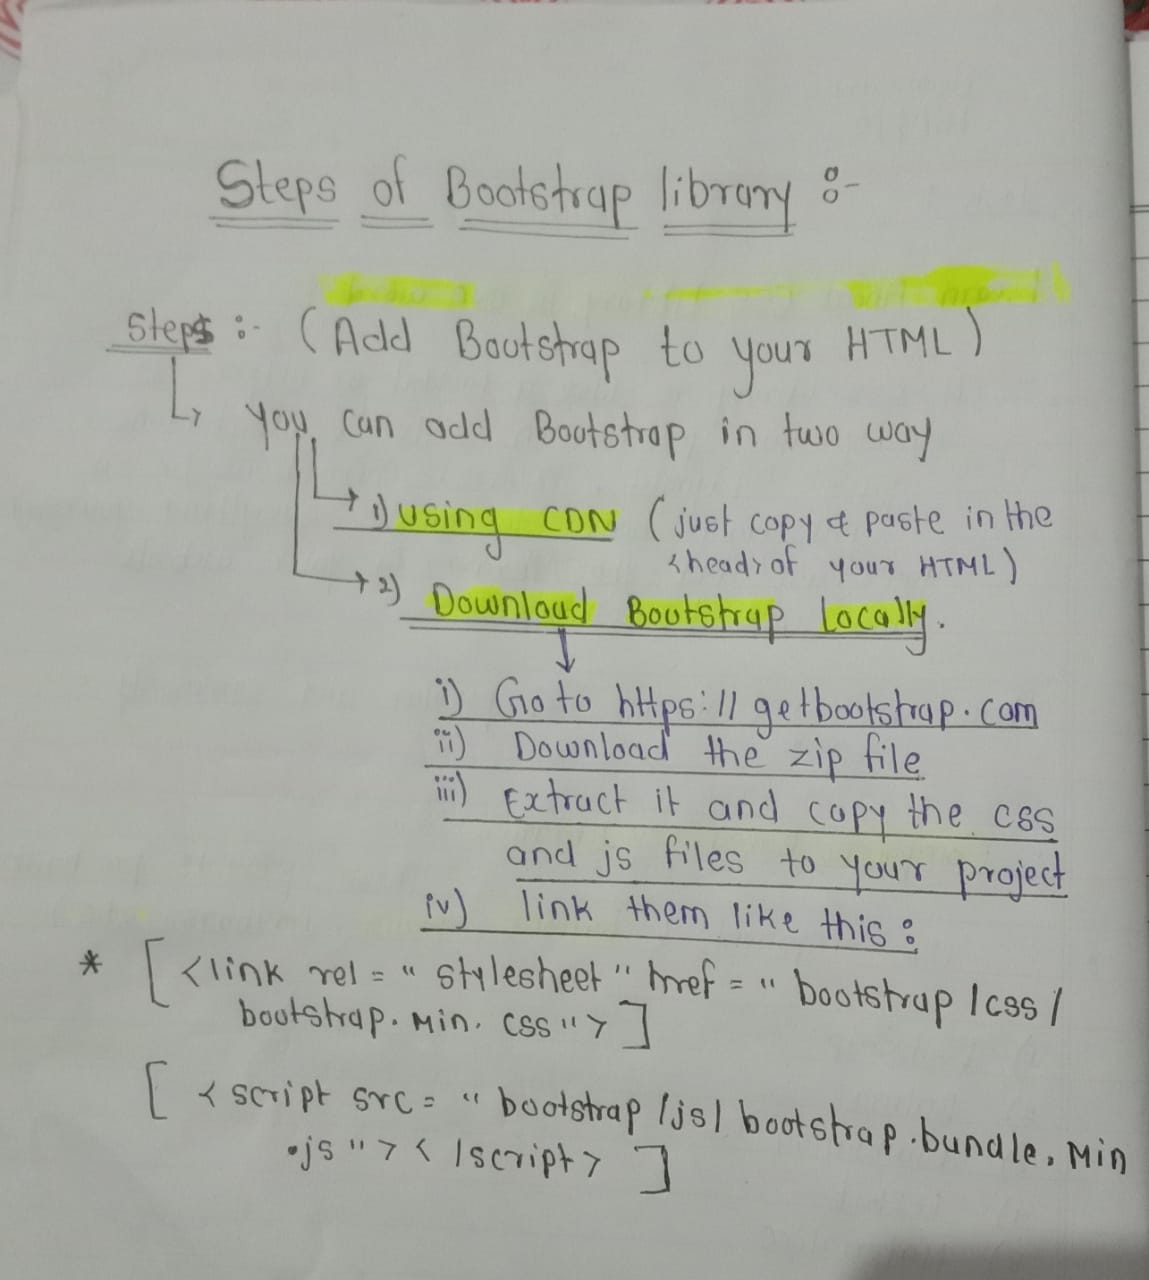 Steps of Bootstrap library :-
Steps :- (Add Bootstrap to your HTML)
you can add Bootstrap in two way
1) using CDN (just copy & paste in the
<head> of your HTML)
2) Download Bootstrap Locally.
i) Go to https://getbootstrap.com
ii) Download the zip file
iii) Extract it and copy the css
and js files to your project
iv) link them like this :
* [<link rel = "stylesheet" href = "bootstrap/css/
bootstrap.min.css">]
[<script src = "bootstrap/js/bootstrap.bundle.min
.js"></script>]